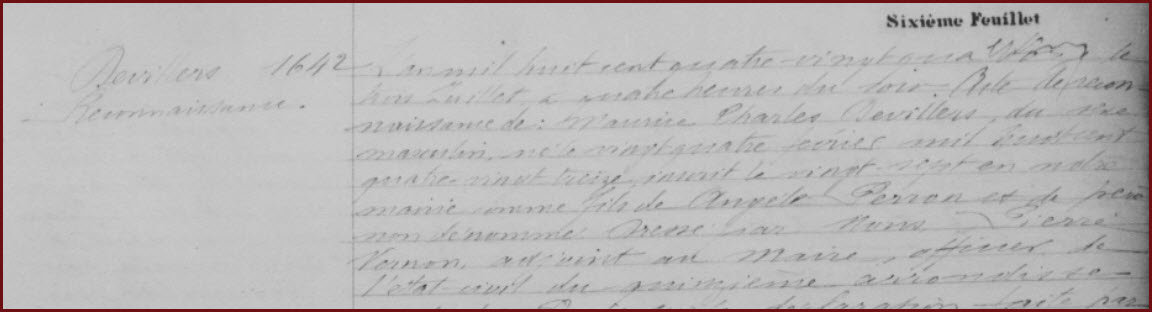 Sixième Feuillet
Devillers 1642
Reconnaissance.
L'an mil huit cent quatre-vingt le
Juillet, à quatre heures du soir. Acte de recon
naissance de : Maurice Charles Devillers, du sexe
masculin, né le vingt quatre février mil huit cent
quatre-vingt treize, inscrit le vingt-sept en notre
mairie comme fils de Angèle Perron et de père
non dénommé. Dressé par Nous, Pierre
Vernon, adjoint au Maire, officier de
l'état civil du quinzième arrondisse
déclaration faite par